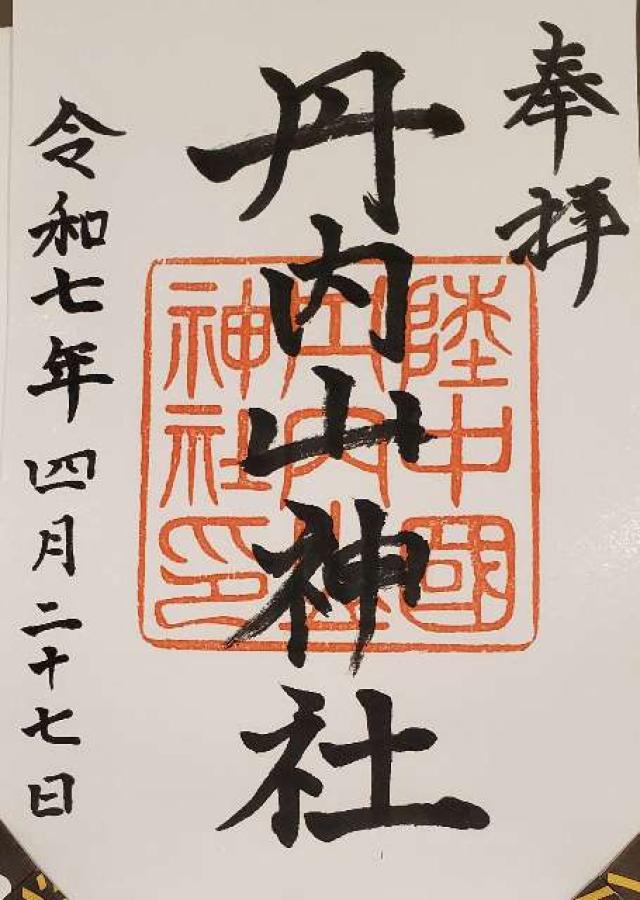 奉拝
丹内山神社
陸中國
丹内山
神社印
令和七年四月二十七日